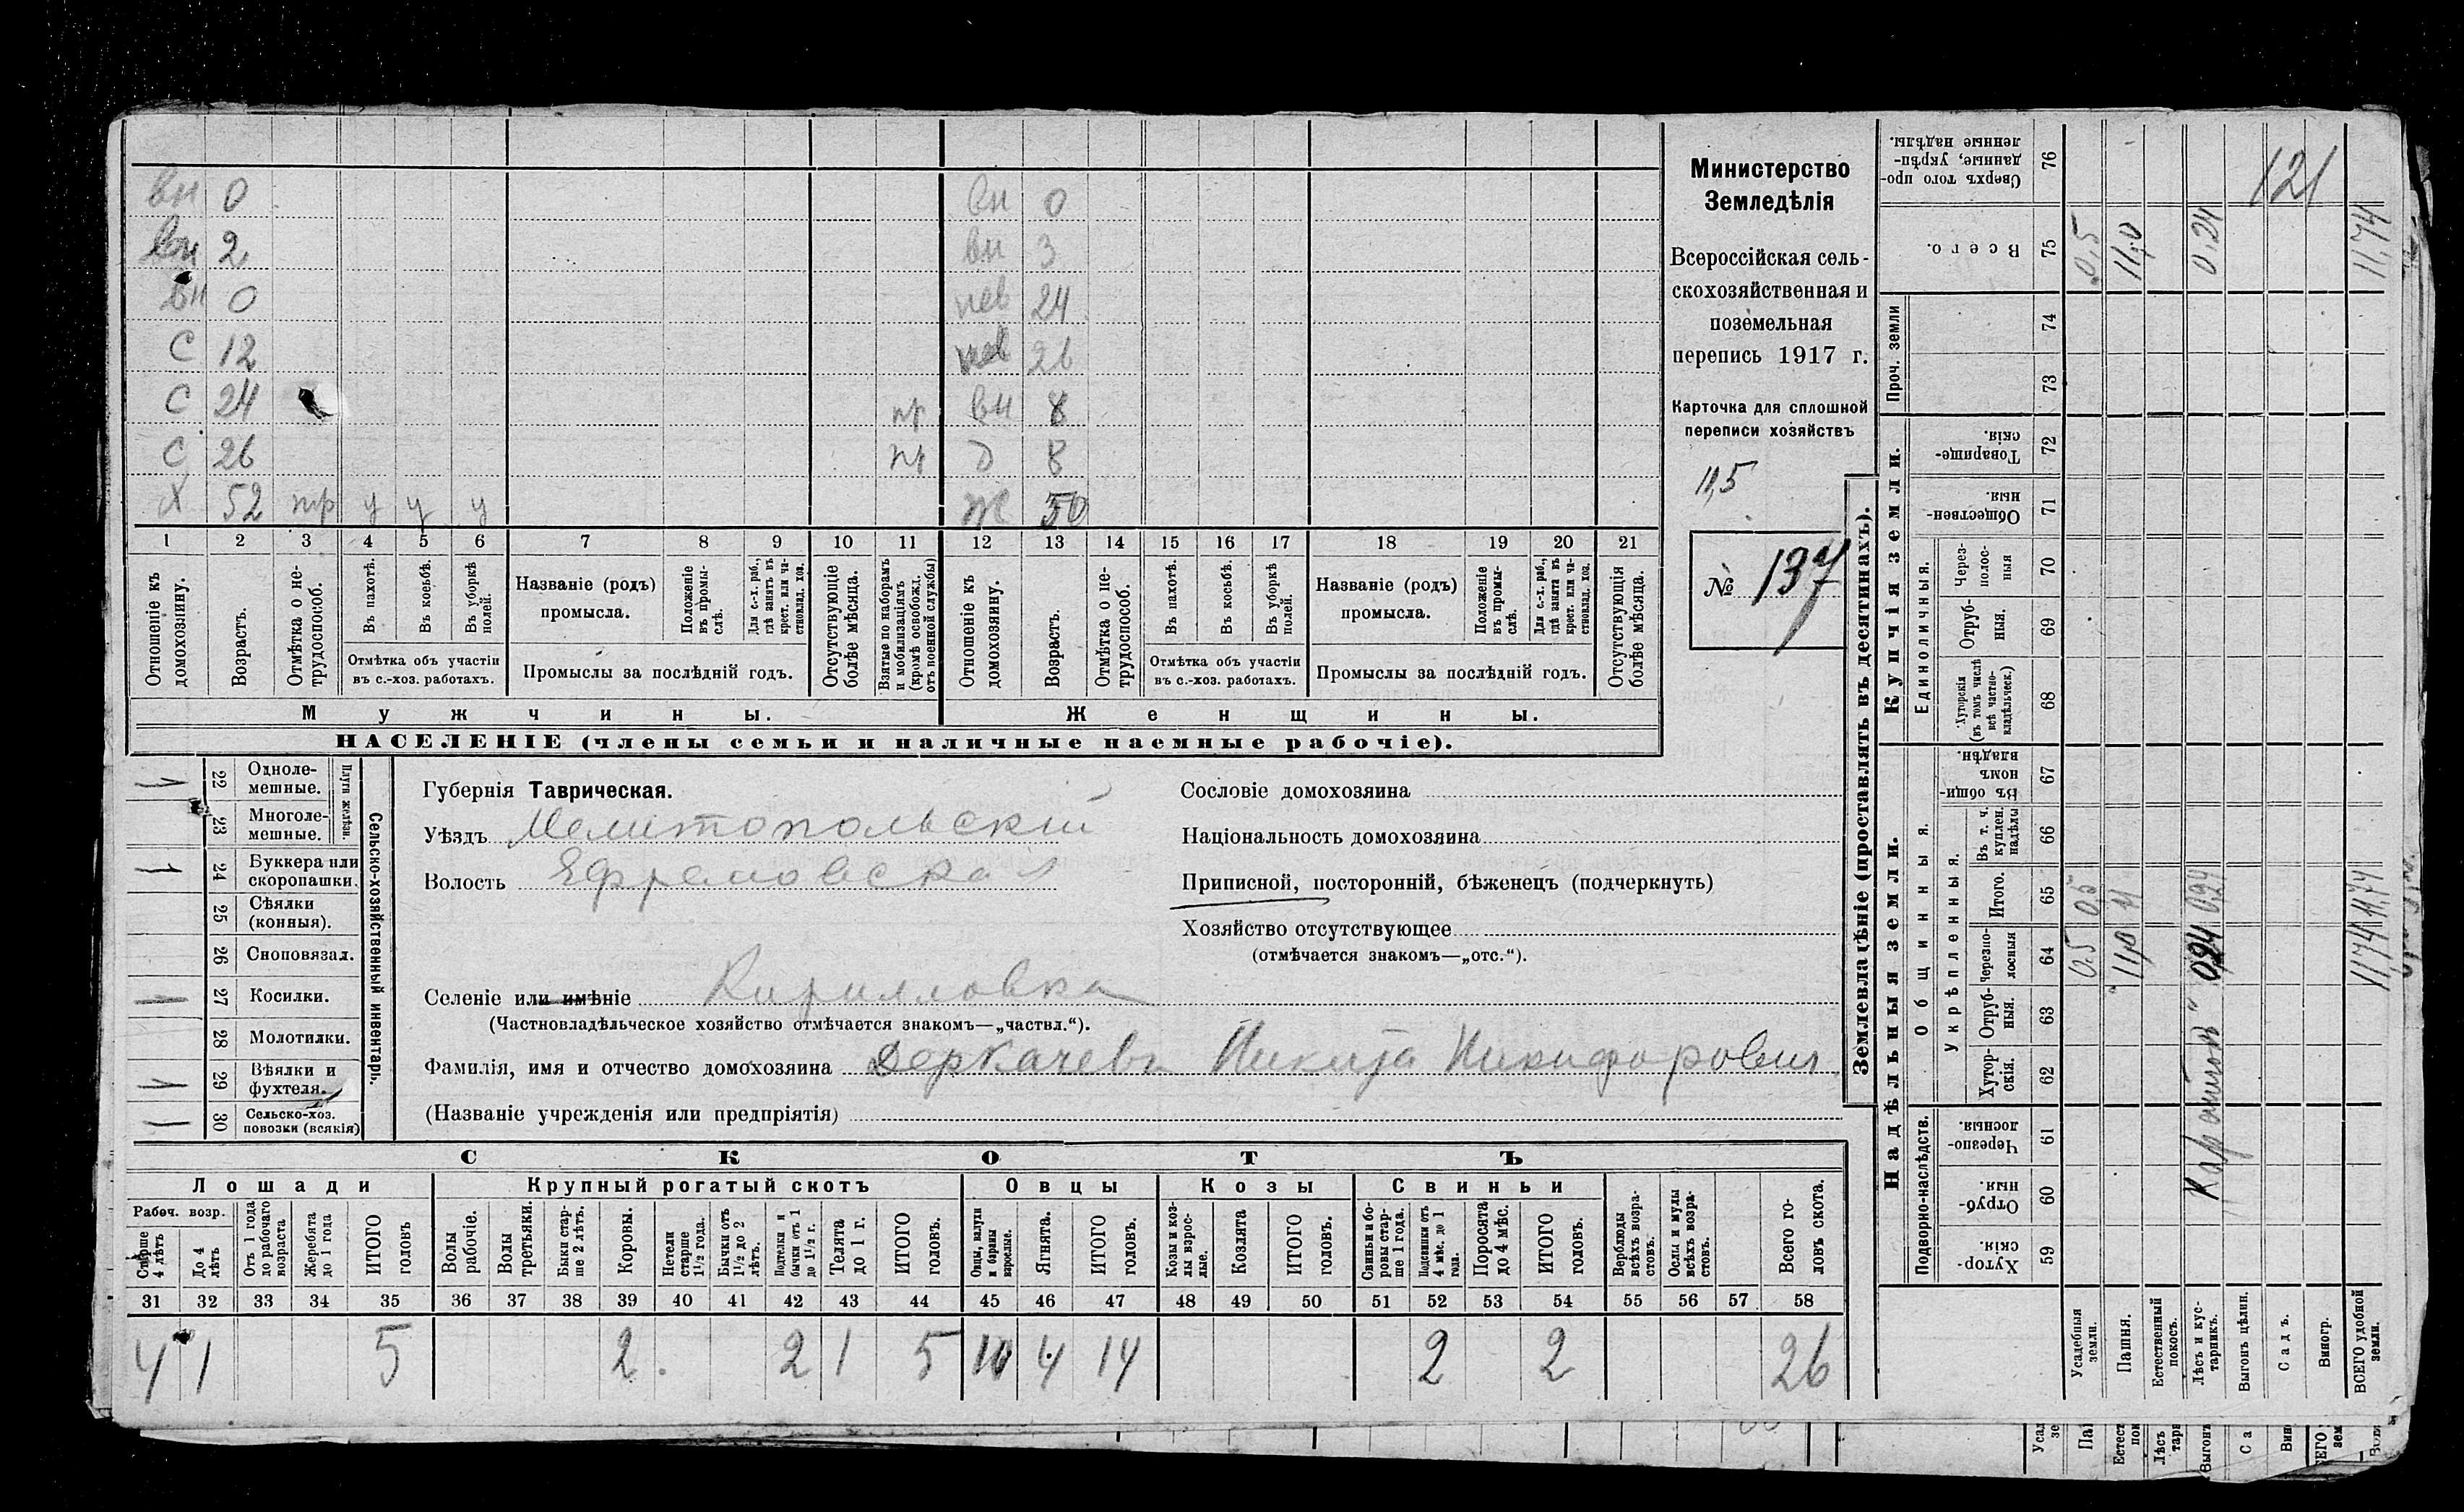 вн 0 вн 0
вн 2 вн 3
вн 0 нев 24
С 12 нев 26
С 24 пр вн 8
С 26 пр д 8
Х 52 тр у у у Ж 50
1 2 3 4 5 6 7 8 9 10 11 12 13 14 15 16 17 18 19 20 21
Отношеніе къ домохозяину.
Возрастъ.
Отмѣтка о не-трудоспособ.
Въ пахотѣ.
Въ косьбѣ.
Въ уборкѣ полей.
Отмѣтка объ участіи
въ с.-хоз. работахъ.
Названіе (родъ)
промысла.
Положеніе въ промы-слѣ.
Для с.-х. раб., гдѣ занятъ въ крест. или ча-стновлад. хоз.
Промыслы за послѣдній годъ.
Отсутствующіе болѣе мѣсяца.
Взятые по наборамъ и мобилизаціямъ (кромѣ освобожд. отъ военной службы)
Отношеніе къ домохозяину.
Возрастъ.
Отмѣтка о не-трудоспособ.
Въ пахотѣ.
Въ косьбѣ.
Въ уборкѣ полей.
Отмѣтка объ участіи
въ с.-хоз. работахъ.
Названіе (родъ)
промысла.
Положеніе въ промы-слѣ.
Для с.-х. раб., гдѣ занята въ крест. или ча-стновлад. хоз.
Промыслы за послѣдній годъ.
Отсутствующія болѣе мѣсяца.
Мужчины. Женщины.
НАСЕЛЕНІЕ (члены семьи и наличные наемные рабочіе).
Министерство
Земледѣлія
Всероссійская сель-
скохозяйственная и
поземельная
перепись 1917 г.
Карточка для сплошной
переписи хозяйствъ
11,5
№ 137
22 Одноле-мешные.
23 Многоле-мешные.
Плуги желѣзн.
24 Буккера или скоропашки.
25 Сѣялки (конныя).
26 Сноповязал.
27 Косилки.
28 Молотилки.
29 Вѣялки и фухтеля.
30 Сельско-хоз. повозки (всякія)
Сельско-хозяйственный инвентарь.
Губернія Таврическая.
Уѣздъ Мелитопольскій
Волость Ефремовская
Сословіе домохозяина
Національность домохозяина
Приписной, посторонній, бѣженецъ (подчеркнуть)
Хозяйство отсутствующее
(отмѣчается знакомъ—„отс.“).
Селеніе или имѣніе Кирилловка
(Частновладѣльческое хозяйство отмѣчается знакомъ—„частвл.“).
Фамилія, имя и отчество домохозяина Деркачевъ Никита Никифорович
(Названіе учрежденія или предпріятія)
СКОТЪ
Лошади Крупный рогатый скотъ Овцы Козы Свиньи
Рабоч. возр.
Старше 4 лѣтъ
До 4 лѣтъ
Отъ 1 года до рабочаго возраста
Жеребята до 1 года
ИТОГО головъ
Волы рабочіе.
Волы третьяки.
Быки стар-ше 2 лѣтъ.
Коровы.
Нетели старше 1½ года.
Бычки отъ 1½ до 2 лѣтъ.
Подтелки и бычки отъ 1 до 1½ г.
Телята до 1 г.
ИТОГО головъ.
Овцы, валухи и бараны взрослые.
Ягнята.
ИТОГО головъ.
Козы и коз-лы взрос-лые.
Козлята
ИТОГО головъ.
Свиньи и бо-ровы стар-ше 1 года.
Подсвинки отъ 4 мѣс. до 1 года.
Поросята до 4 мѣс.
ИТОГО головъ.
Верблюды всѣхъ возра-стовъ.
Ослы и мулы всѣхъ возра-стовъ.
Всего го-ловъ скота.
31 32 33 34 35 36 37 38 39 40 41 42 43 44 45 46 47 48 49 50 51 52 53 54 55 56 57 58
4 1 5 2 2 1 5 10 4 14 2 2 26
Землевладѣніе (проставлять въ десятинахъ).
Надѣльныя земли. Купчія земли.
Подворно-наслѣдств.
Общинныя.
Укрѣпленныя.
Единоличныя.
Проч. земли
59 Хутор-скія.
60 Отруб-ныя.
61 Черезпо-лосныя.
62 Хутор-скія.
63 Отруб-ныя.
64 Черезпо-лосныя
65 Итого.
66 Въ т. ч. куплен. надѣлы
67 Въ общин-номъ владѣн.
68 Хуторскія (въ томъ числѣ всѣ частно-владѣльческ.)
69 Отруб-ныя.
70 Через-полос-ныя
71 Обществен-ныя.
72 Товарище-скія.
73
74
75 Всего.
76 Сверхъ того про-данные, укрѣп-ленные надѣлы.
Усадебныя земли. 0,5 0,5 0,5
Пашня. 11,0 11 11,0
Естественный покосъ.
Лѣсъ и кус-тарникъ. 0,24 0,24 0,24
Выгонъ цѣлин.
Садъ. 121
Виногр.
ВСЕГО удобной земли. 11,74 11,74 11,74